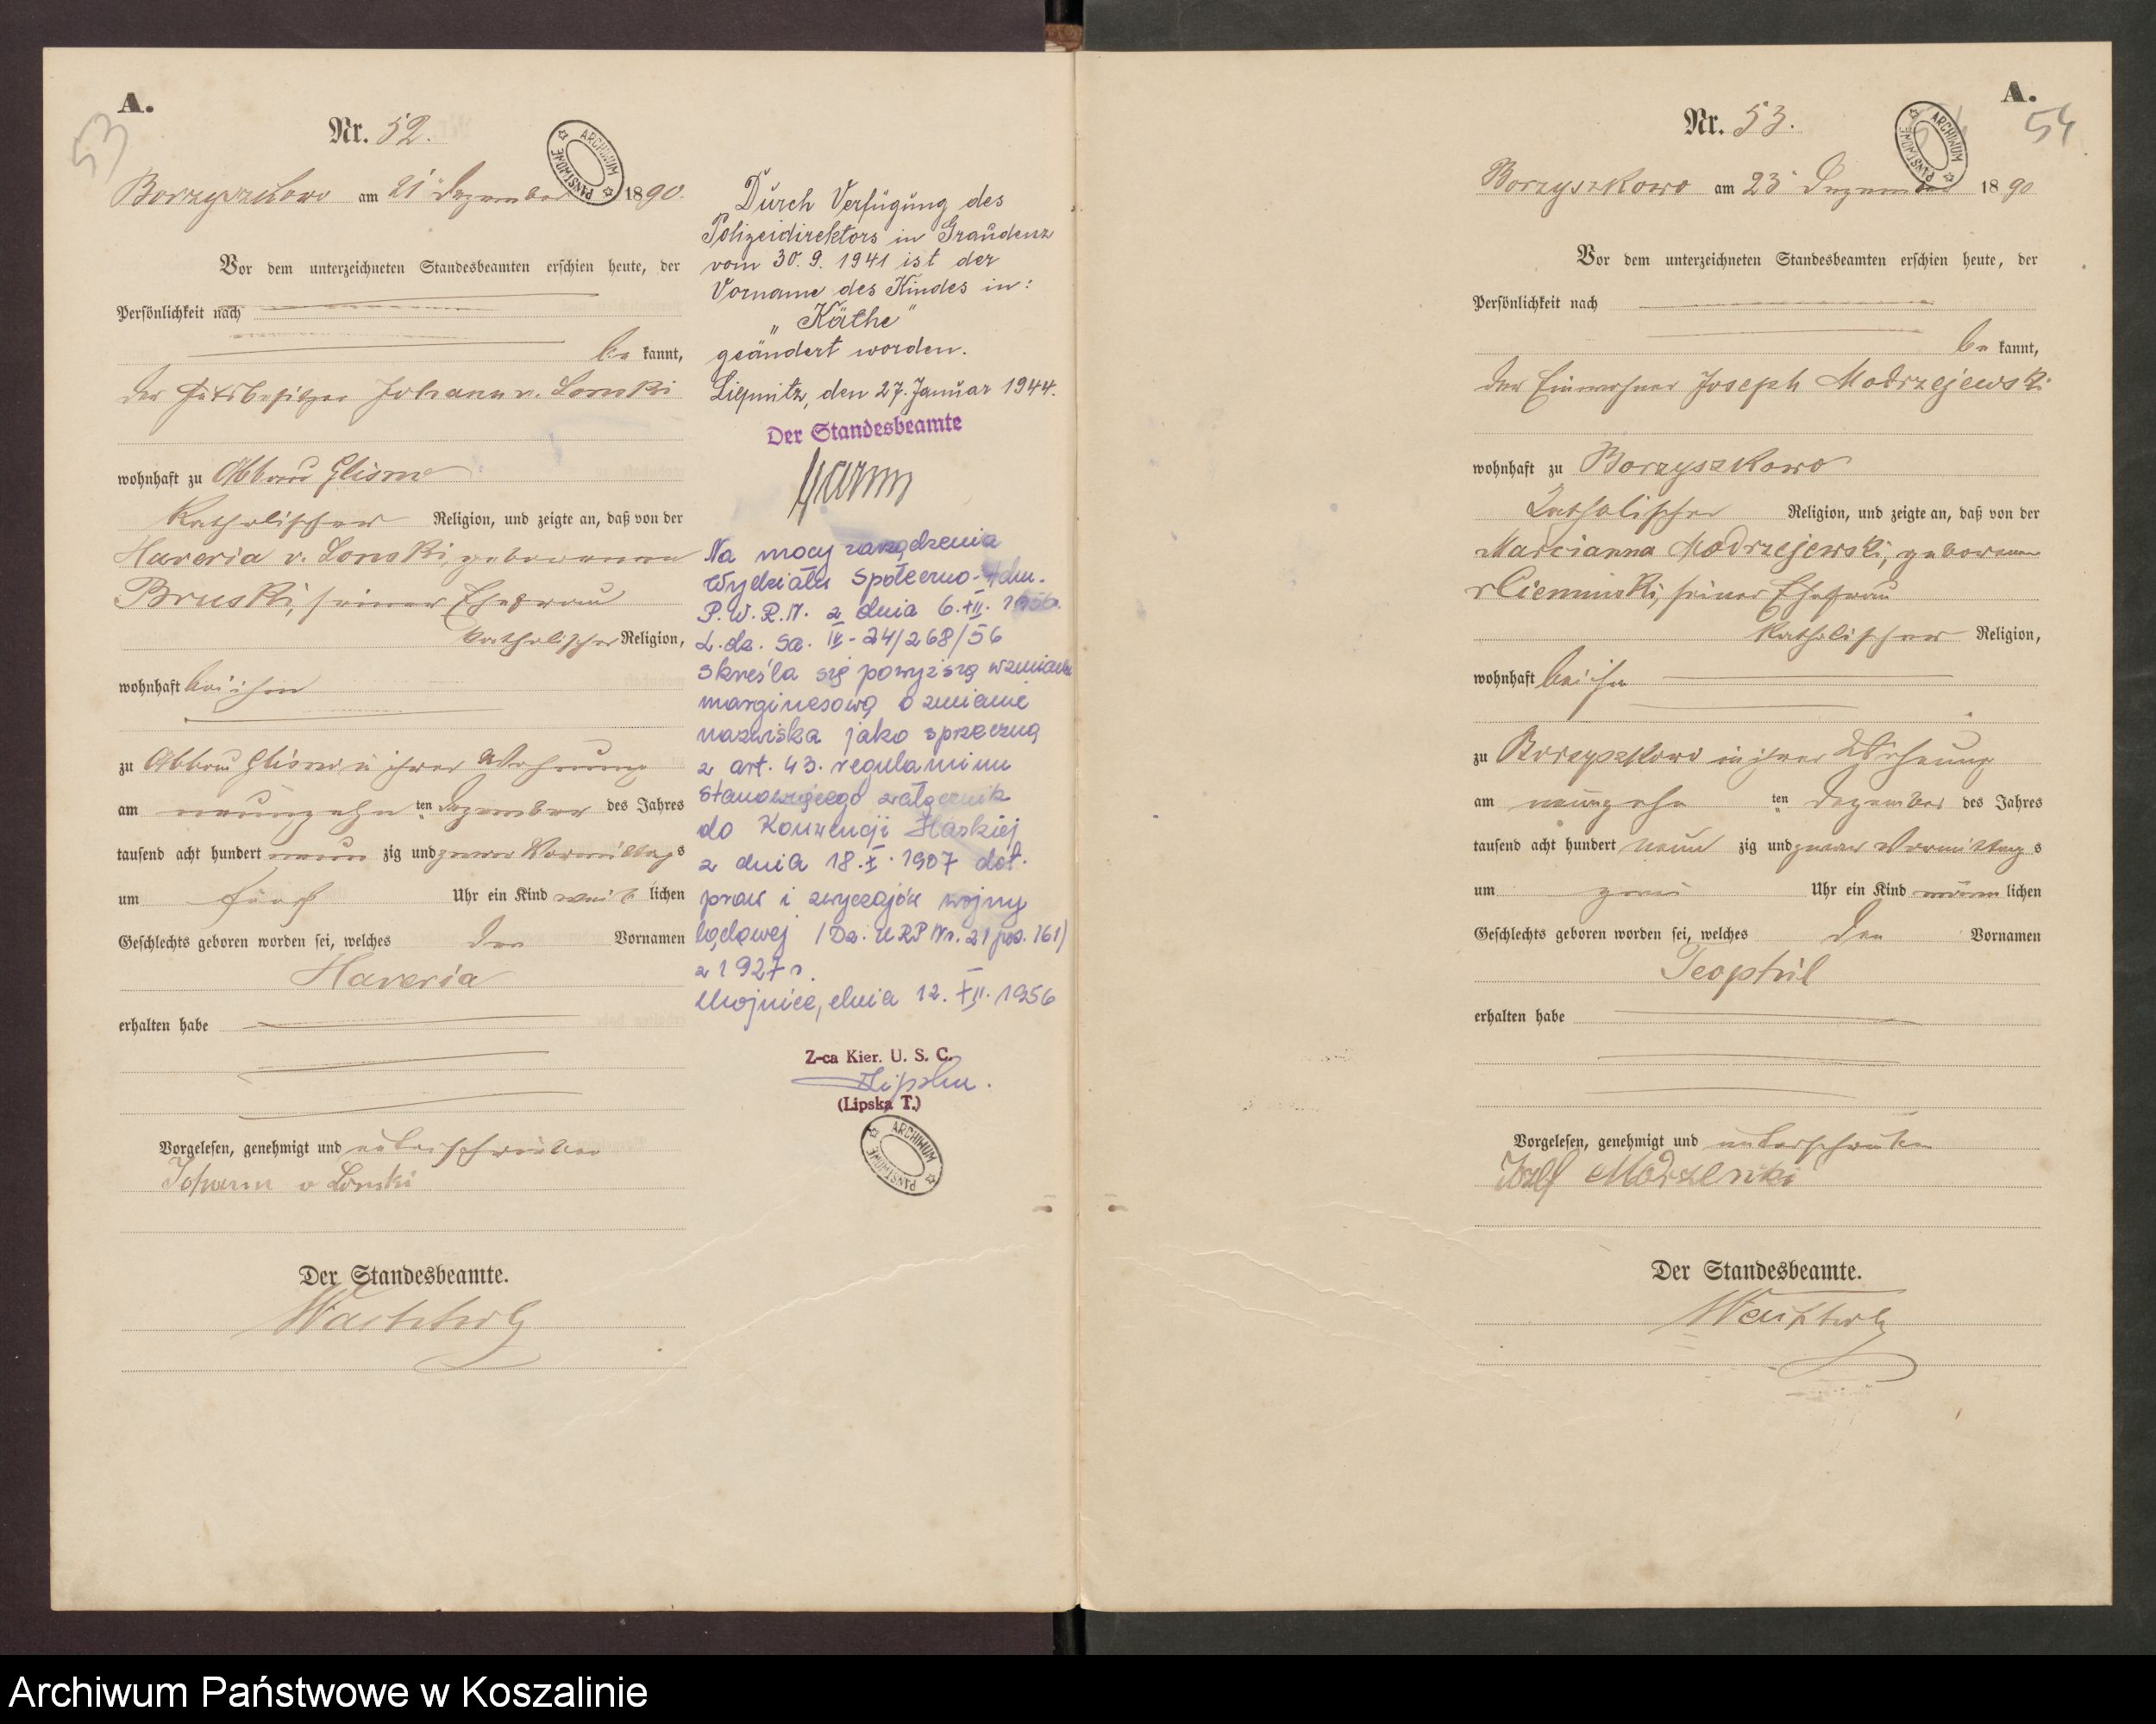 53
A.
Nr. 52.
ARCHIWUM PAŃSTWOWE
Borzyszkowo am 21 Dezember 1890.
Vor dem unterzeichneten Standesbeamten erschien heute, der
Persönlichkeit nach
be kannt,
der Gutsbesitzer Johann v. Lonski
wohnhaft zu Abbau Glisno
katholischer Religion, und zeigte an, daß von der
Haveria v. Lonski, geborenen
Bruski, seiner Ehefrau
katholischer Religion,
wohnhaft bei ihm
zu Abbau Glisno in ihrer Wohnung
am neunzehn ten Dezember des Jahres
tausend acht hundert neun zig und zwar Vormittags
um fünf Uhr ein Kind weib lichen
Geschlechts geboren worden sei, welches den Vornamen
Haveria
erhalten habe
Vorgelesen, genehmigt und unterschrieben
Johann v Lonski
Der Standesbeamte.
Durch Verfügung des
Polizeidirektors in Graudenz
vom 30. 9. 1941 ist der
Vorname des Kindes in:
„Käthe"
geändert worden.
Liepnitz, den 27. Januar 1944.
Der Standesbeamte
Na mocy zarządzenia
Wydziału Społeczno-Adm.
P.W.R.N. z dnia 6.XII. 1956.
L.dz. Sa. IV-24/268/56
skreśla się powyższą wzmiankę
marginesową o zmianie
nazwiska jako sprzeczną
z art. 43. regulaminu
stanowiącego załącznik
do Konwencji Haskiej
z dnia 18.X. 1907 dot.
praw i zwyczajów wojny
lądowej /Dz. U RP Nr. 21 poz. 161)
z 1927 r.
Chojnice, dnia 12. XII. 1956
Z-ca Kier. U. S. C.
(Lipska T.)
ARCHIWUM PAŃSTWOWE
A.
54
Nr. 53.
ARCHIWUM PAŃSTWOWE
Borzyszkowo am 23 Dezember 1890
Vor dem unterzeichneten Standesbeamten erschien heute, der
Persönlichkeit nach
be kannt,
der Einwohner Joseph Modrzejewski
wohnhaft zu Borzyszkowo
katholischer Religion, und zeigte an, daß von der
Marcianna Modrzejewski, geborenen
v Cieminski, seiner Ehefrau
katholischer Religion,
wohnhaft bei ihm
zu Borzyszkowo in ihrer Wohnung
am neunzehn ten Dezember des Jahres
tausend acht hundert neun zig und zwar Vormittags
um zwei Uhr ein Kind männ lichen
Geschlechts geboren worden sei, welches den Vornamen
Teophil
erhalten habe
Vorgelesen, genehmigt und unterschrieben
Der Standesbeamte.
Archiwum Państwowe w Koszalinie